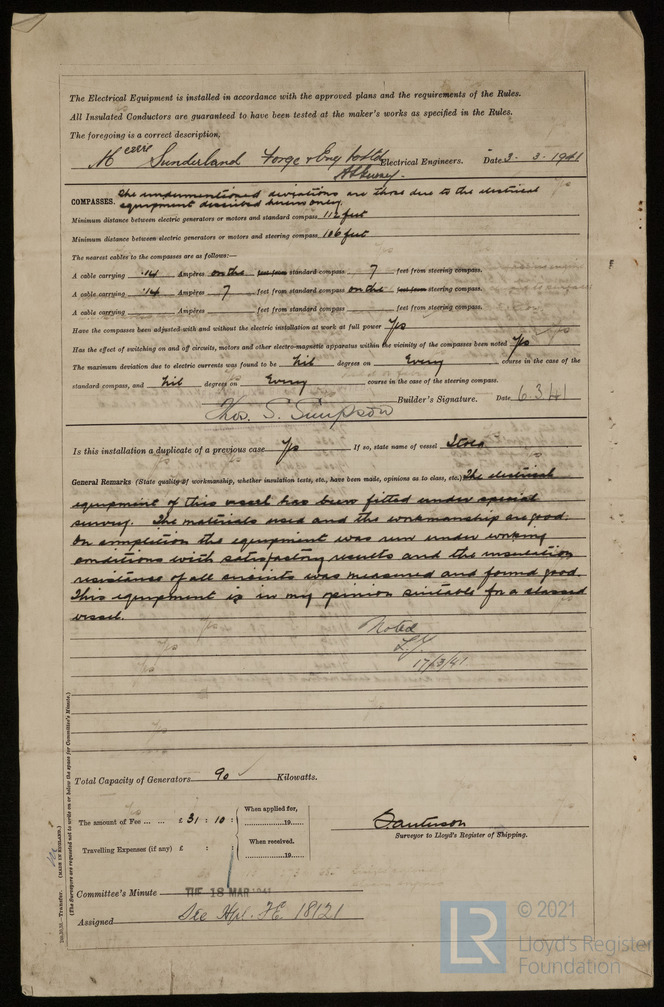 The Electrical Equipment is installed in accordance with the approved plans and the requirements of the Rules.
All Insulated Conductors are guaranteed to have been tested at the maker's works as specified in the Rules.
The foregoing is a correct description,
Messrs Sunderland Forge & Eng Co Ltd Electrical Engineers. Date 3. 3. 1941
COMPASSES. The undermentioned deviations are those due to the electrical
equipment described herein only.
Minimum distance between electric generators or motors and standard compass 112 feet
Minimum distance between electric generators or motors and steering compass 106 feet
The nearest cables to the compasses are as follows:—
A cable carrying .14 Ampères on the feet from standard compass 7 feet from steering compass.
A cable carrying .14 Ampères 7 feet from standard compass on the feet from steering compass.
A cable carrying Ampères feet from standard compass feet from steering compass.
Have the compasses been adjusted with and without the electric installation at work at full power Yes
Has the effect of switching on and off circuits, motors and other electro-magnetic apparatus within the vicinity of the compasses been noted Yes
The maximum deviation due to electric currents was found to be Nil degrees on Every course in the case of the
standard compass, and Nil degrees on Every course in the case of the steering compass.
Thos. S. Simpson Builder's Signature. Date 6.3.41
Is this installation a duplicate of a previous case Yes If so, state name of vessel
General Remarks (State quality of workmanship, whether insulation tests, etc., have been made, opinions as to class, etc.) The electrical
equipment of this vessel has been fitted under special
survey. The materials used and the workmanship are good.
On completion the equipment was run under working
conditions with satisfactory results and the insulation
resistance of all circuits was measured and found good.
This equipment is in my opinion suitable for a classed
vessel.
Noted
17/3/41
Total Capacity of Generators 90 Kilowatts.
The amount of Fee ... ... £ 31 : 10 : When applied for, 19
Travelling Expenses (if any) £ : : When received. 19
Surveyor to Lloyd's Register of Shipping.
Committee's Minute TUE 18 MAR 1941
Assigned See Hpl. F.E. 18121
(MADE IN ENGLAND.)
Transfer.
(The Surveyors are requested not to write on or below the space for Committee's Minute.)
LR
© 2021
Lloyd's Register
Foundation